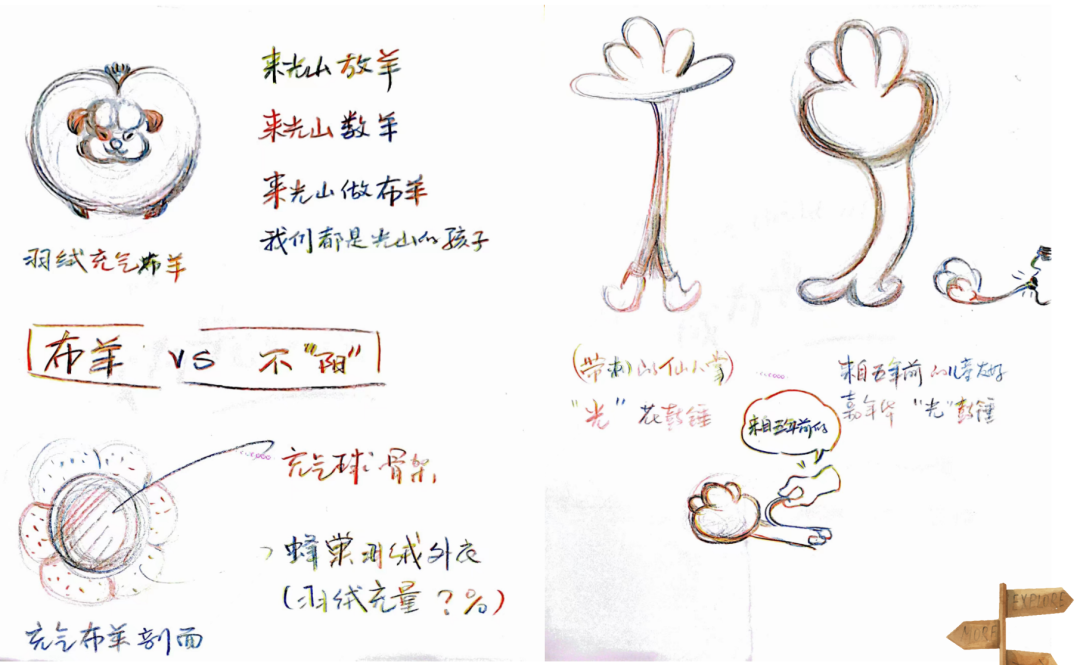 来光山放羊
来光山数羊
来光山做布羊
我们都是光山的孩子
羽绒充气布羊
布羊 VS 不"阳"
充气球骨架
蜂巢羽绒外衣
(羽绒充量?%)
充气布羊剖面
(带刺)的仙人掌
"光"花鼓锤
来自五年前的儿童友好
嘉年华"光"鼓锤
来自五年前的
EXPLORE
MORE